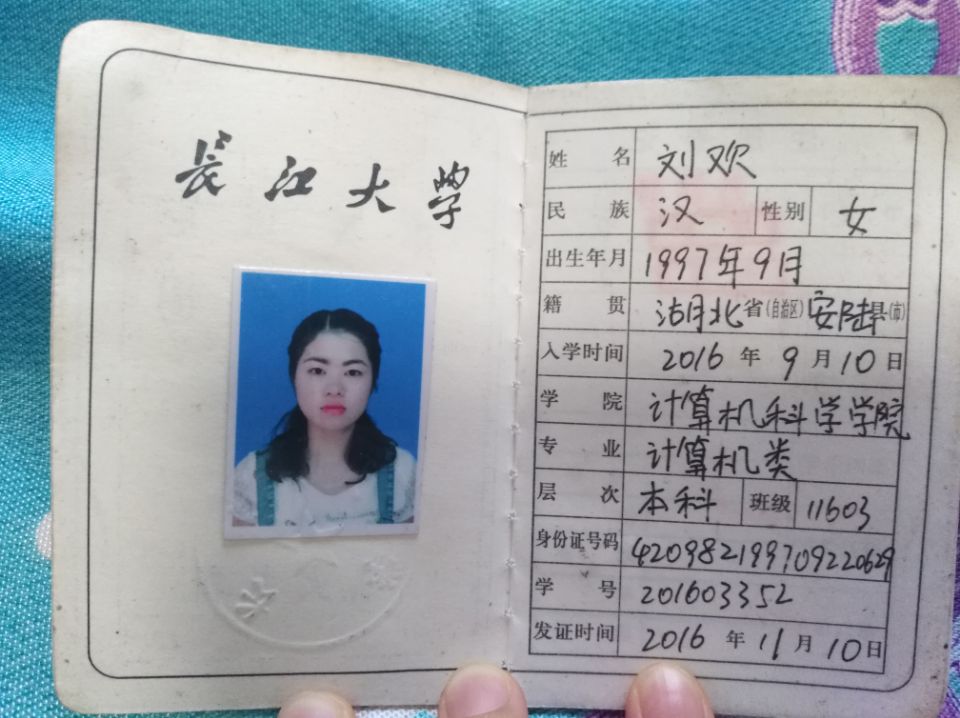 长江大学
姓名 刘欢
民族 汉 性别 女
出生年月 1997年9月
籍贯 湖北省(自治区)安陆县(市)
入学时间 2016年9月10日
学院 计算机科学学院
专业 计算机类
层次 本科 班级 11603
身份证号码 420982199709220629
学号 201603352
发证时间 2016年11月10日